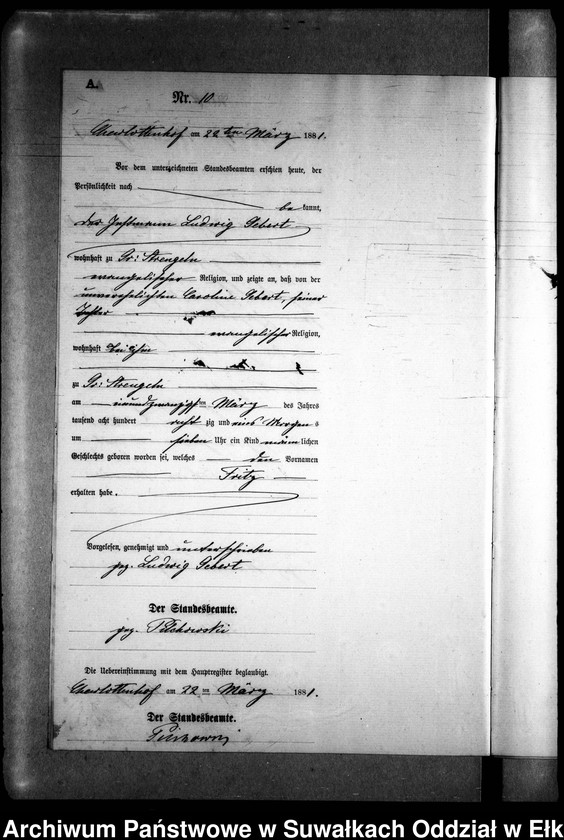 A.
Nr. 10
Charlottenhof am 22ten März 1881.
Vor dem unterzeichneten Standesbeamten erschien heute, der
Persönlichkeit nach
be kannt,
der Instmann Ludwig Gebert
wohnhaft zu Gr: Strengeln
evangelischer Religion, und zeigte an, daß von der
unverehelichten Caroline Gebert, seiner
Tochter
evangelischer Religion,
wohnhaft bei ihm
zu Gr: Strengeln
am ten März des Jahres
tausend acht hundert acht zig und eins Morgens
um sieben Uhr ein Kind männ lichen
Geschlechts geboren worden sei, welches den Vornamen
Fritz
erhalten habe.
Vorgelesen, genehmigt und unterschrieben
gez. Ludwig Gebert
Der Standesbeamte.
gez.
Die Uebereinstimmung mit dem Hauptregister beglaubigt.
Charlottenhof am 22 ten März 1881.
Der Standesbeamte.
Archiwum Państwowe w Suwałkach Oddział w Ełk